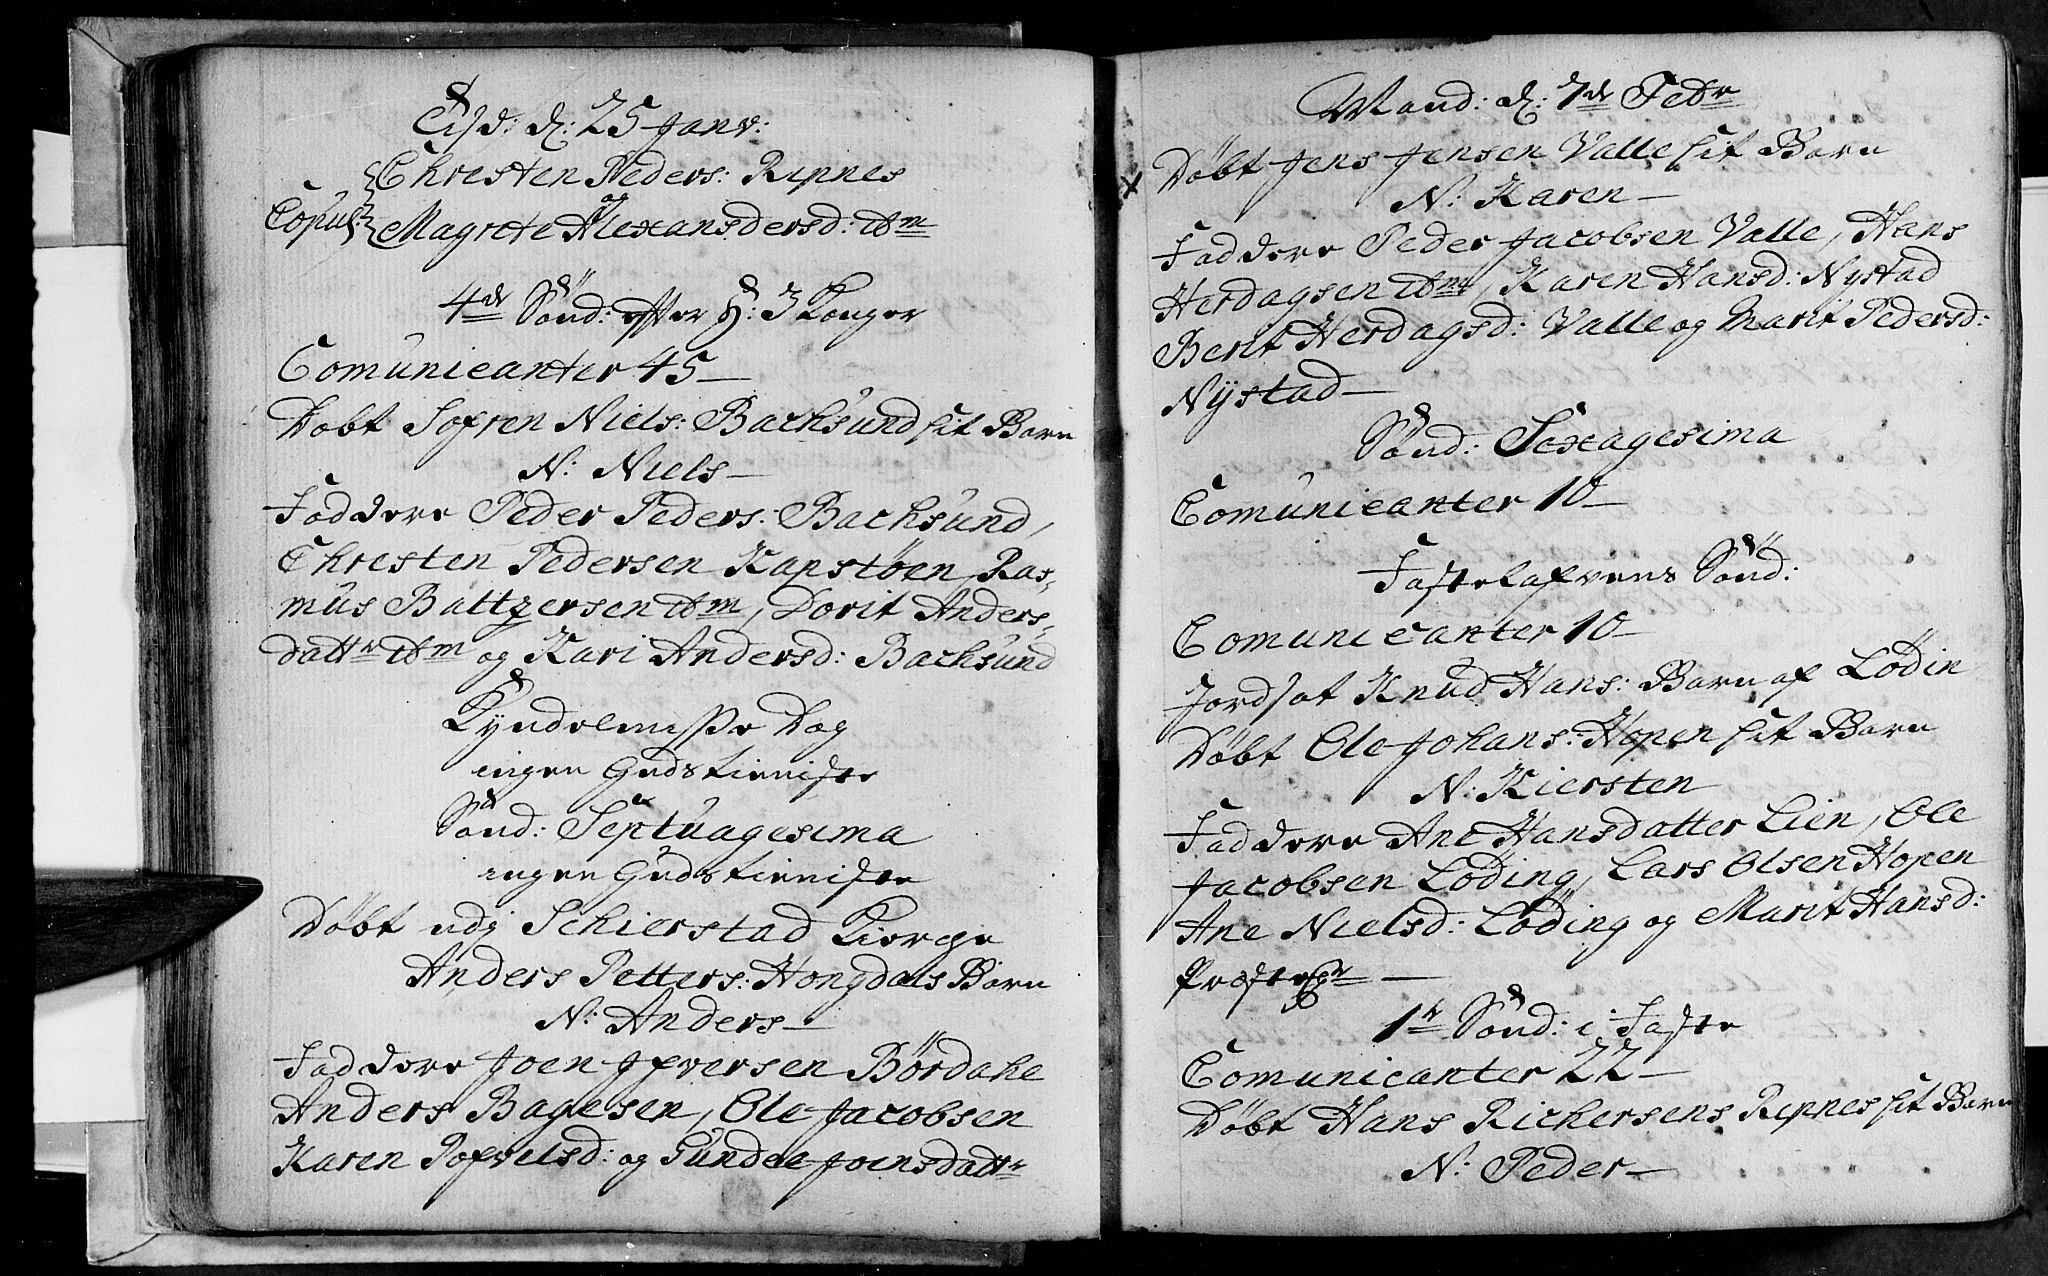 Tisd: d: 25 Janv:
Christen Peders: Ripnes
og
Copul: Magrete Alexansdersd: ibm
4de Sönd: efter H: 3 Konger
Comunicanter 45 —
Döbt Sofren Niels: Bachsund sit Barn
N: Niels —
Faddere Peder Peders: Bachsund,
Christen Pedersen Kapstöen, Ras,,
mus Baltzersen ibm, Dorit Anders,,
dattr ibm og Kari Andersd: Bachsund
Kyndelmisse Dag
ingen Gudstieniste
Sönd: Septuagesima
ingen Gudstieniste
Döbt udj Schierstad Kierche
Anders Petters: Hongdals Barn
N: Anders —
Faddere Joen Jfversen Bördahl
Anders Bagesen, Ole Jacobsen
Karen Pofvelsd: og Gundel Joensdattr
Mand: d: 7de Febr
Döbt Jens Jensen Valle sit Barn
N: Karen —
Faddere Peder Jacobsen Valle, Hans
Herdagsen ibm, Karen Hansd: Nystad
Berit Herdagsd: Valle og Marit Pedersd:
Nystad —
Sönd: Sexagesima
Comunicanter 10 —
Fastelafvens Sönd:
Comunicanter 10 —
Jordsat Knud Hans: Barn af Lödin
Döbt Ole Johans: Hopen sit Barn
N: Kiersten
Faddere Ane Hansdatter Lien, Ole
Jacobsen Löding, Lars Olsen Hopen
Ane Nielsd: Löding og Marit Hansd:
—
1te Sönd: i Faste
Comunicanter 22 —
Döbt Hans Richersens Ripnes sit Barn
N: Peder —